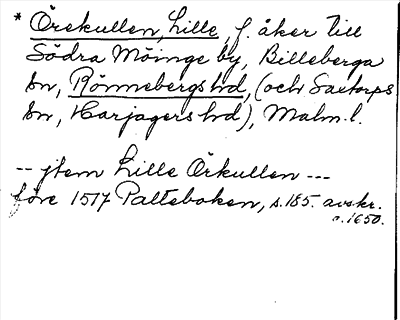 * Örekullen, Lille, f. åker till
Södra Möinge by, Billeberga
sn, Rönnebergs hd, (och Saxtorps
sn, Harjagers hd), Malm. l.
-- jtem Lille Örkullen ---
före 1517 Palteboken, s. 185. avskr.
c. 1650.